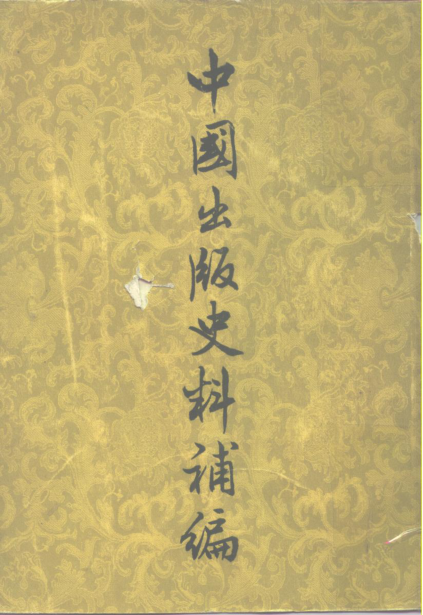 中國出版史料補編